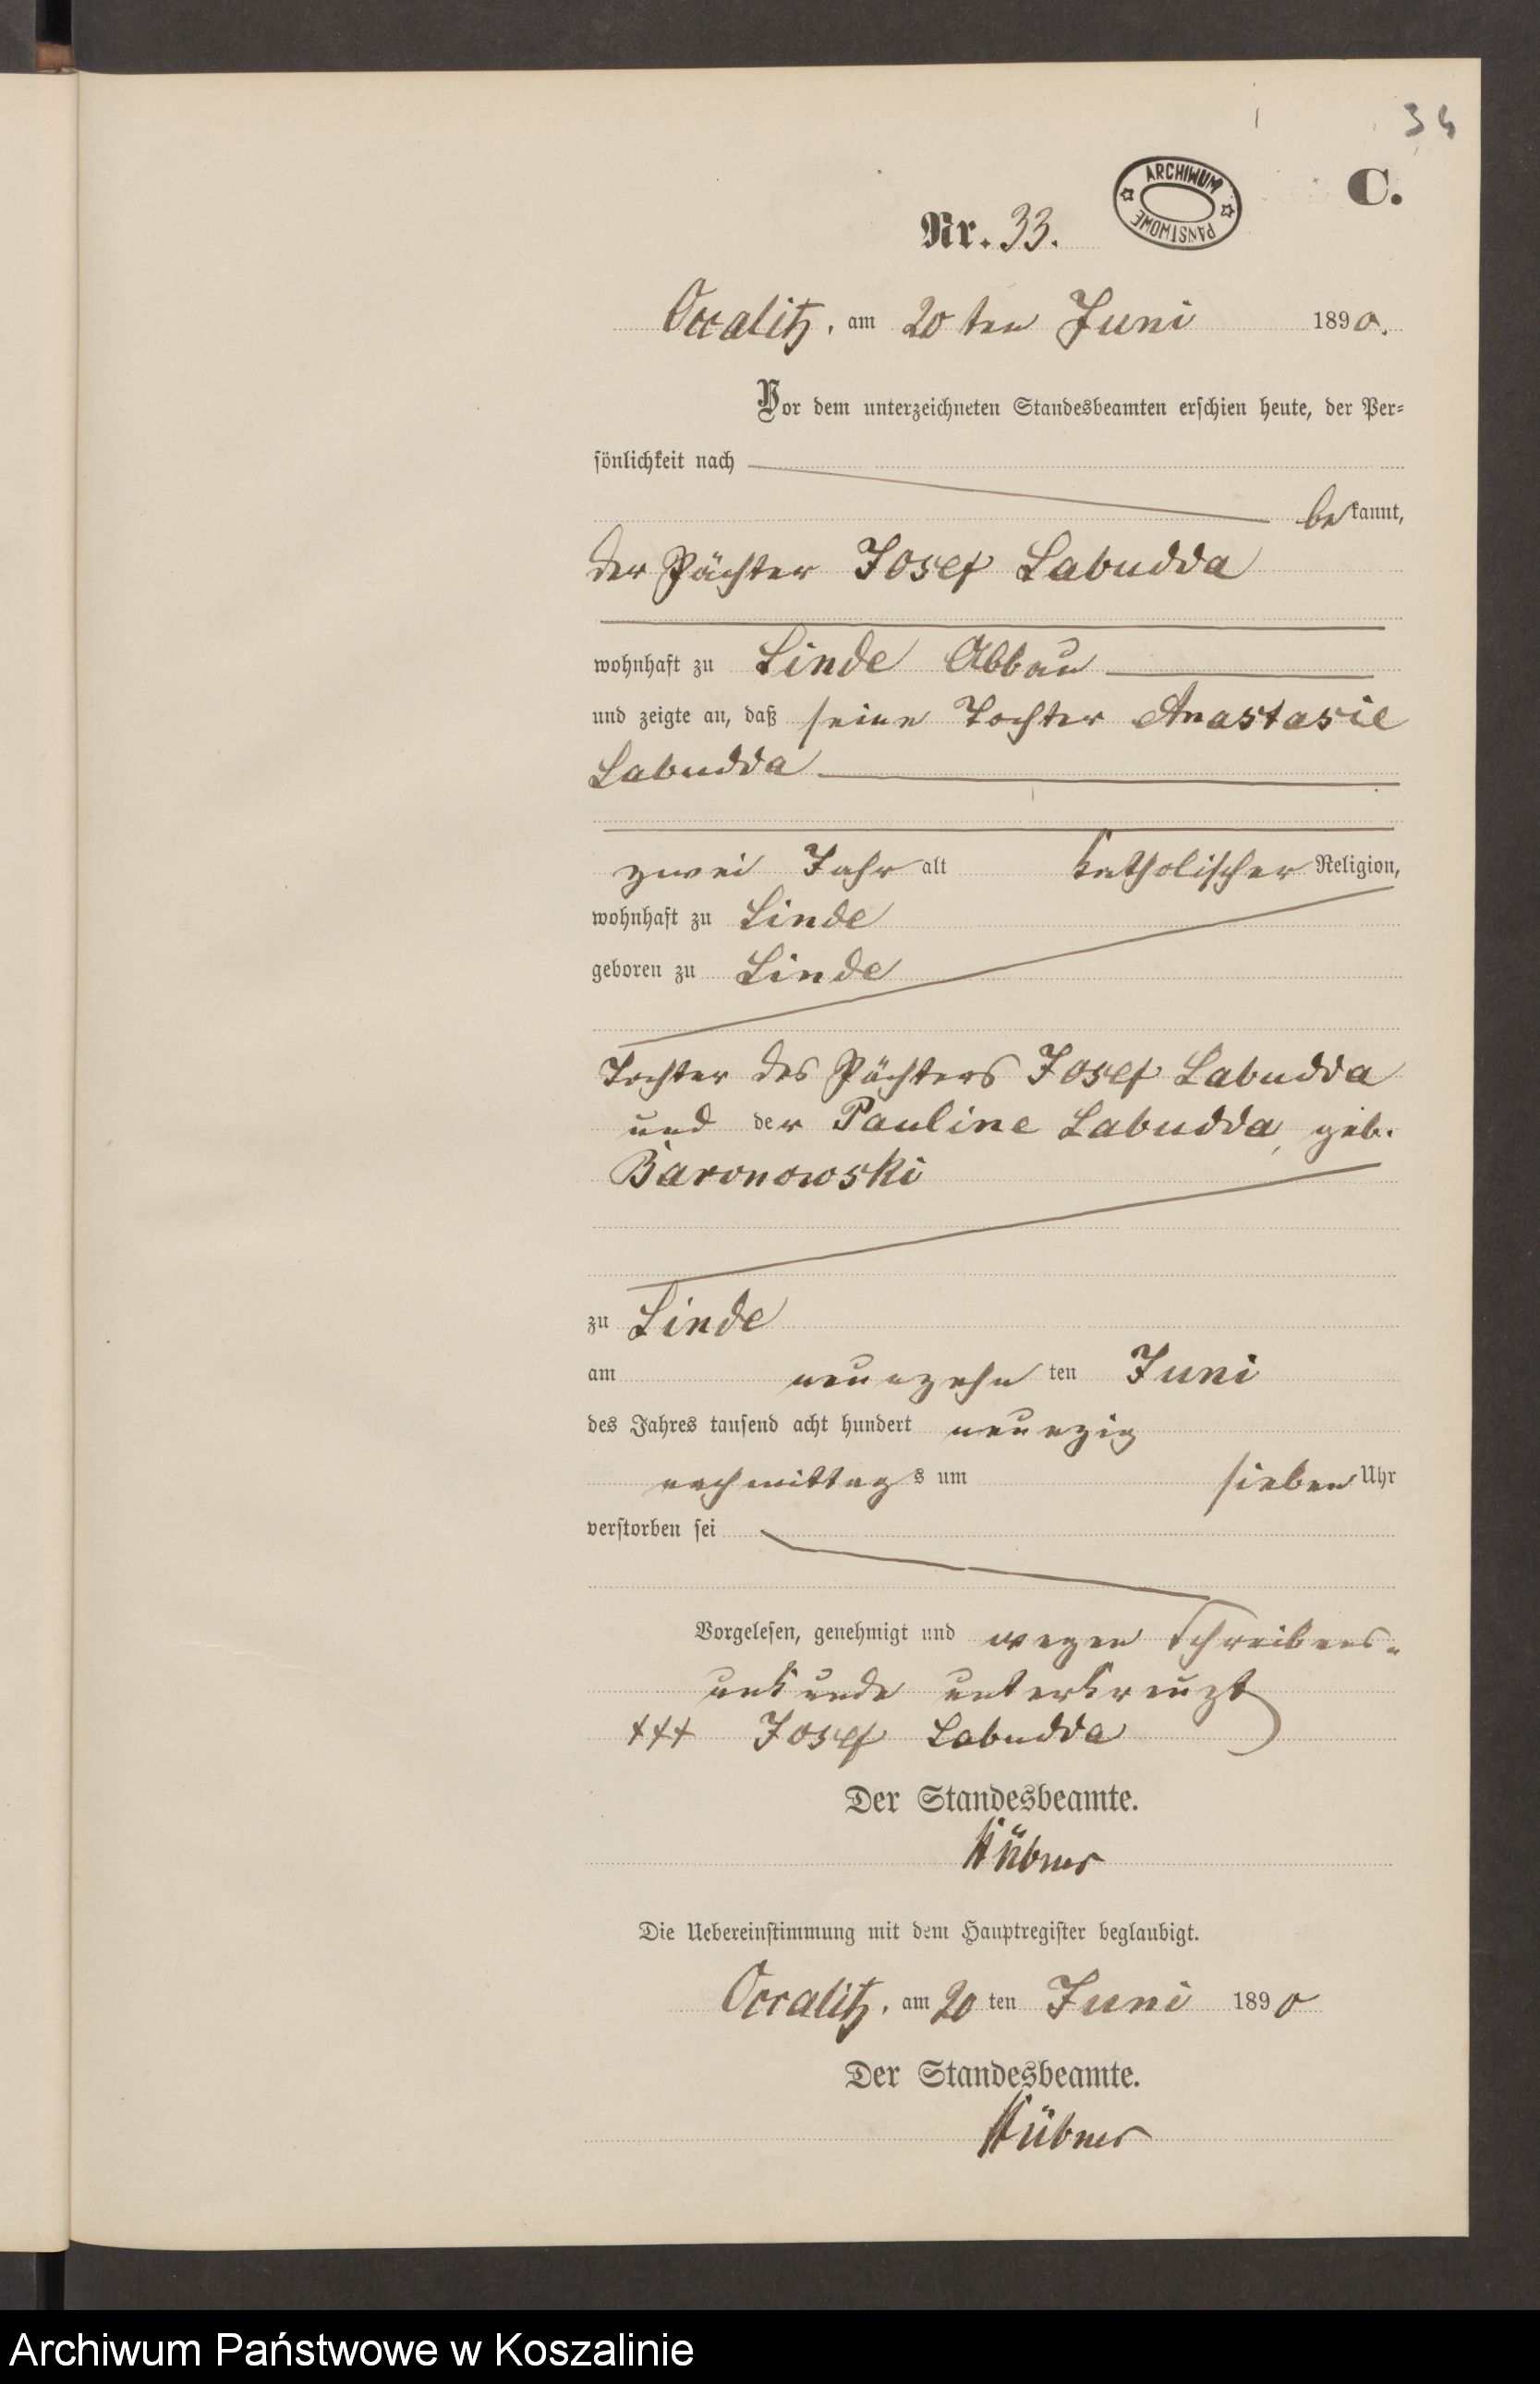 34
C.
ARCHIWUM PAŃSTWOWE
Nr. 33.
Occalitz, am 20 ten Juni 1890.
Vor dem unterzeichneten Standesbeamten erschien heute, der Per-
sönlichkeit nach
bekannt,
der Pächter Josef Labudda
wohnhaft zu Linde Abbau
und zeigte an, daß seine Tochter Anastasie
Labudda
zwei Jahr alt katholischer Religion,
wohnhaft zu Linde
geboren zu Linde
Tochter des Pächters Josef Labudda
und der Pauline Labudda, geb.
Baronowski
zu Linde
am neunzehn ten Juni
des Jahres tausend acht hundert neunzig
nachmittags um sieben Uhr
verstorben sei
Vorgelesen, genehmigt und wegen Schreibens-
unkunde unterkreuzt
+++ Josef Labudda
Der Standesbeamte.
Hübner
Die Uebereinstimmung mit dem Hauptregister beglaubigt.
Occalitz, am 20 ten Juni 1890
Der Standesbeamte.
Hübner
Archiwum Państwowe w Koszalinie